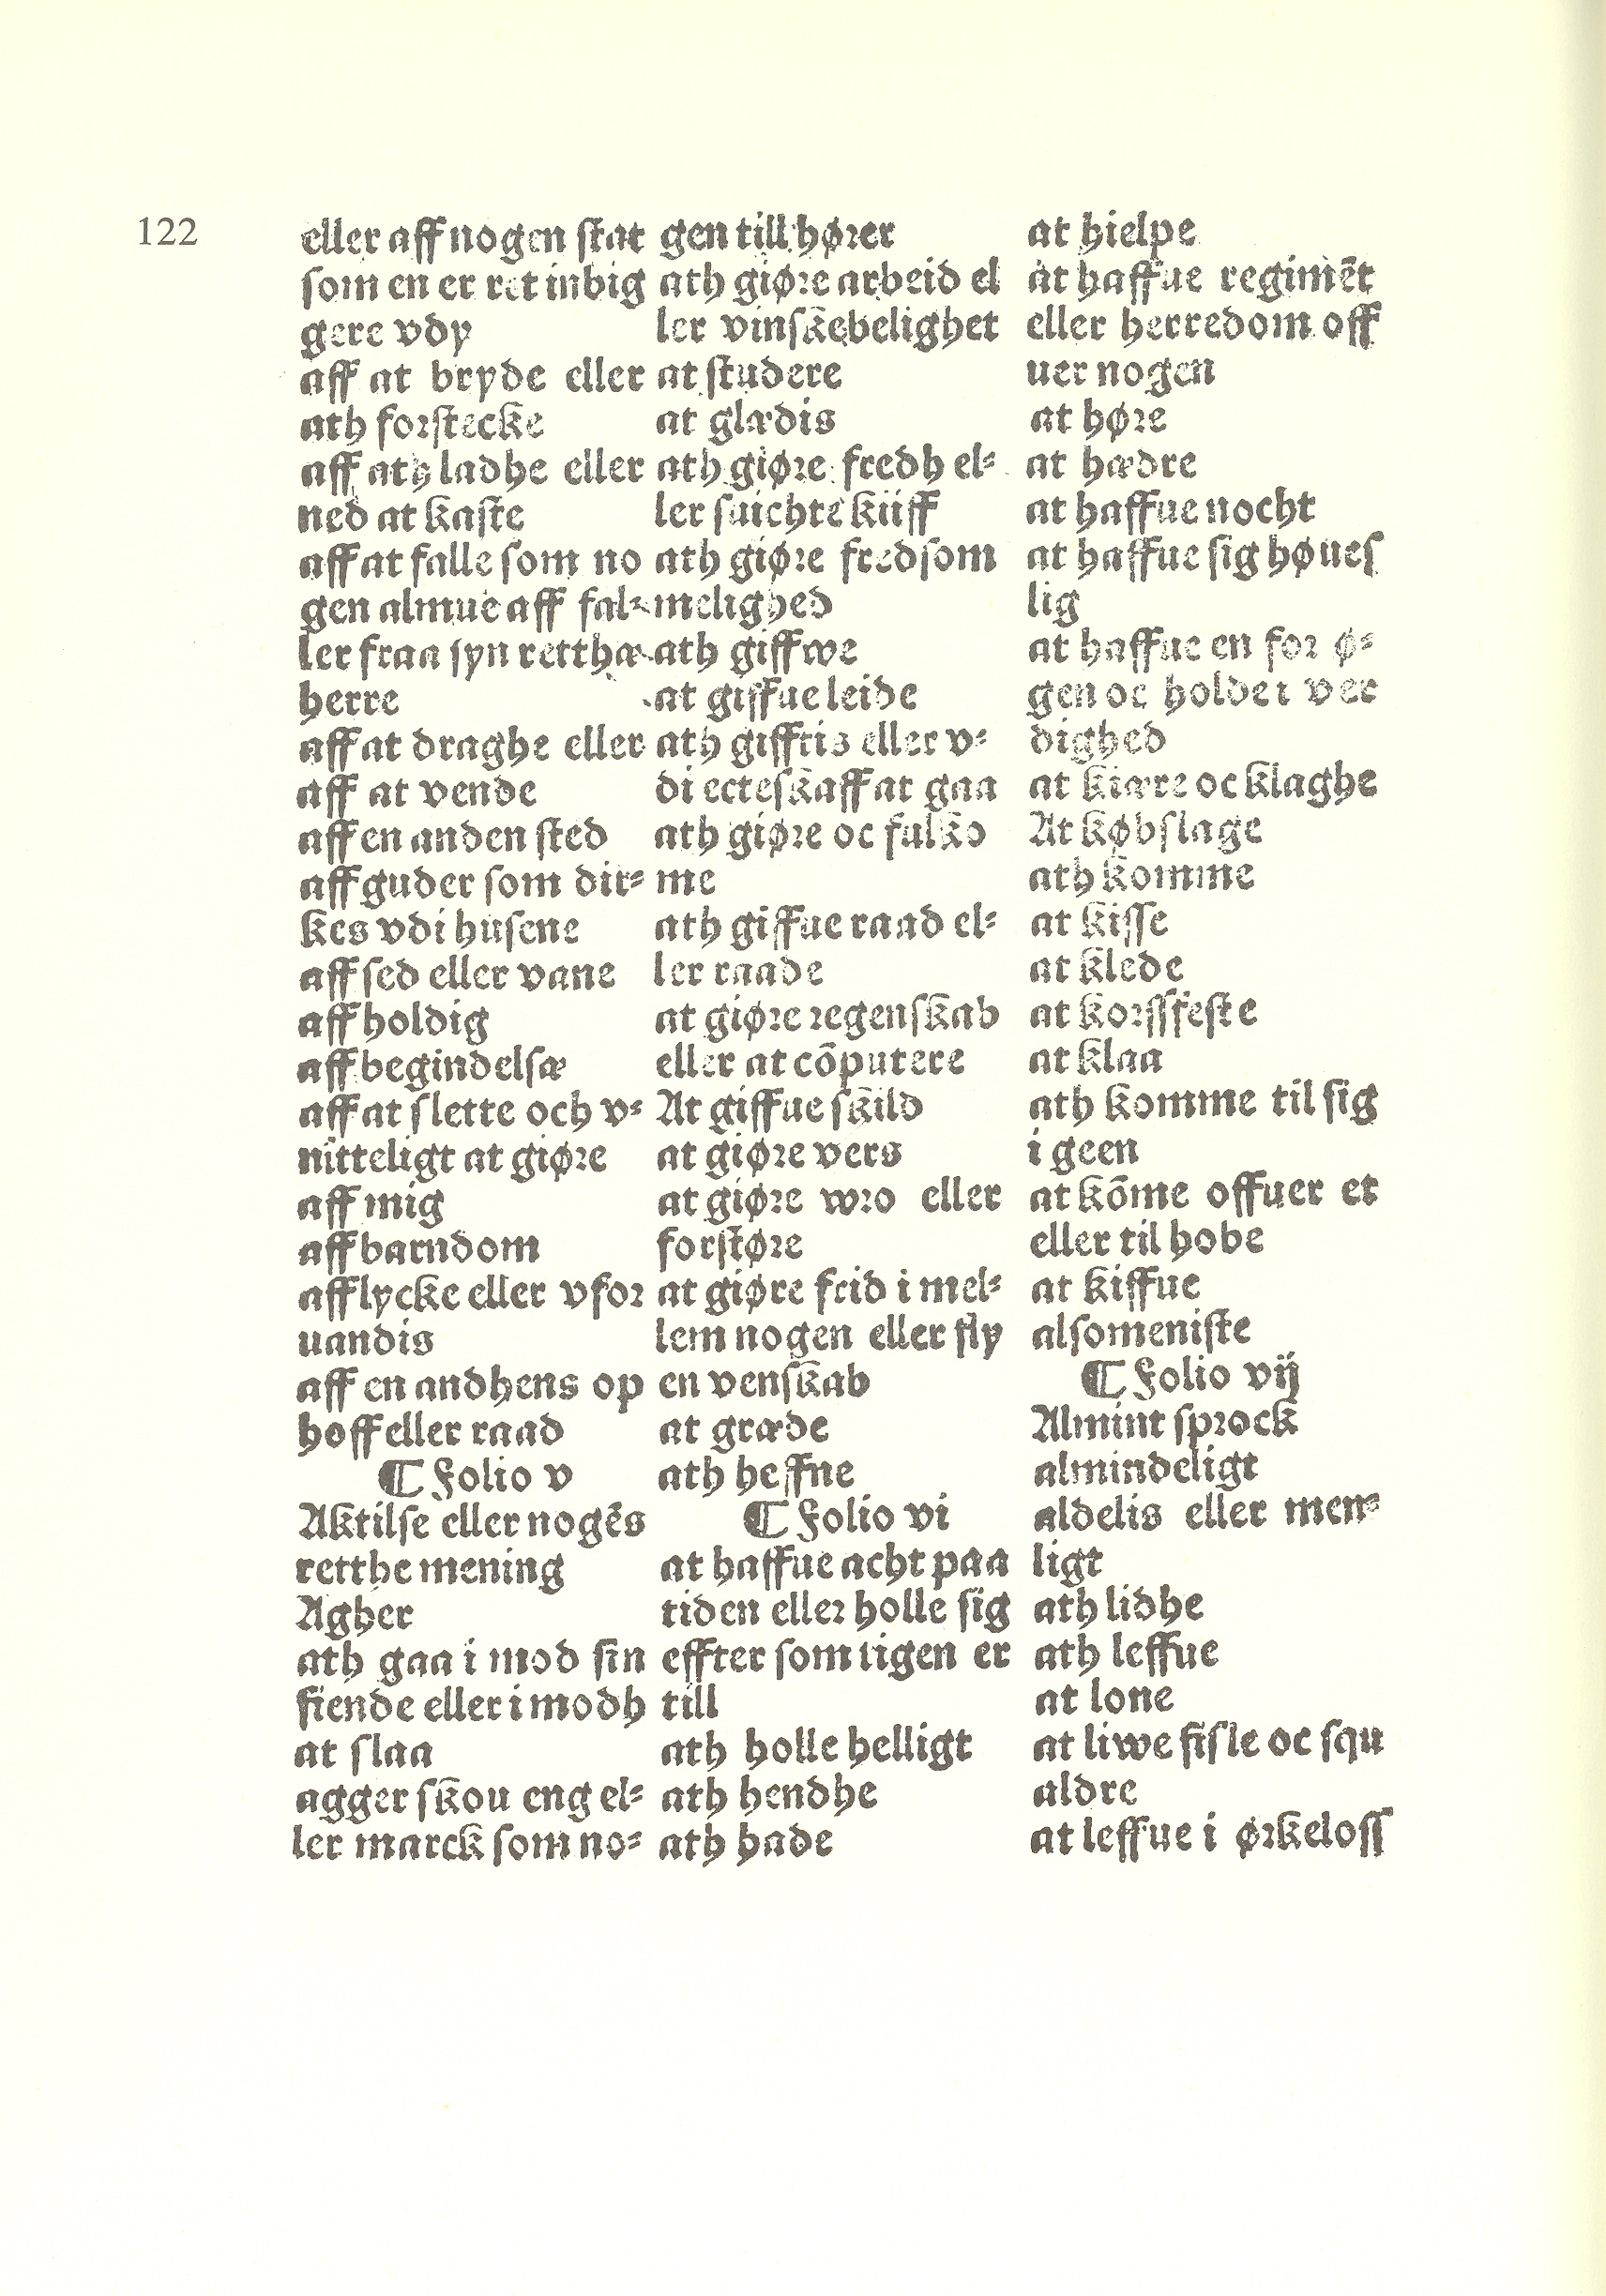 122
eller aff nogen stat
som en er ret inbig
gere vdy
aff at bryde eller
ath forstecke
aff ath ladhe eller
ned at kaste
aff at falle som no
gen almue aff fal⸗
ler fraa syn retthæ
herre
aff at draghe eller
aff at vende
aff en anden sted
aff guder som dir⸗
kes vdi husene
aff sed eller vane
aff holdig
aff begindelsæ
aff at slette och v⸗
nitteligt at giøre
aff mig
aff barndom
aff lycke eller vfor
uandis
aff en andhens op
hoff eller raad
¶ Folio v
Aktilse eller nogēs
retthe mening
Agher
ath gaa i mod sin
fiende eller i modh
at slaa
agger skou eng el⸗
ler marck som no⸗
gen till hører
ath giøre arbeid el
ler vinskebelighet
at studere
at glædis
ath giøre fredh el⸗
ler suichte kiiff
ath giøre fredsom
melighed
ath giffwe
at giffue leide
ath gifftis eller v⸗
di ecteskaff at gaa
ath giøre oc fulko
me
ath giffue raad el⸗
ler raade
at giøre regenskab
eller at cōputere
At giffue skild
at giøre vers
at giøre wro eller
forstøre
at giøre frid i mel⸗
lem nogen eller fly
en venskab
at græde
ath heffne
¶ Folio vi
at haffue acht paa
tiden eller holle sig
effter som tigen er
till
ath holle helligt
ath hendhe
ath hade
at hielpe
at haffue regimēt
eller herredom off
uer nogen
at høre
at hædre
at haffue nocht
at haffue sig høues
lig
at haffue en for ø⸗
gen oc holde i ver
dighed
at kiære oc klaghe
At købslage
ath komme
at kisse
at klede
at korssfeste
at klaa
ath komme til sig
i geen
at kōme offuer et
eller til hobe
at kiffue
alsomeniste
¶ Folio vij
Almint sprock
almindeligt
aldelis eller men⸗
ligt
ath lidhe
ath leffue
at lone
at liwe fisle oc squ
aldre
at leffue i ørkeloss